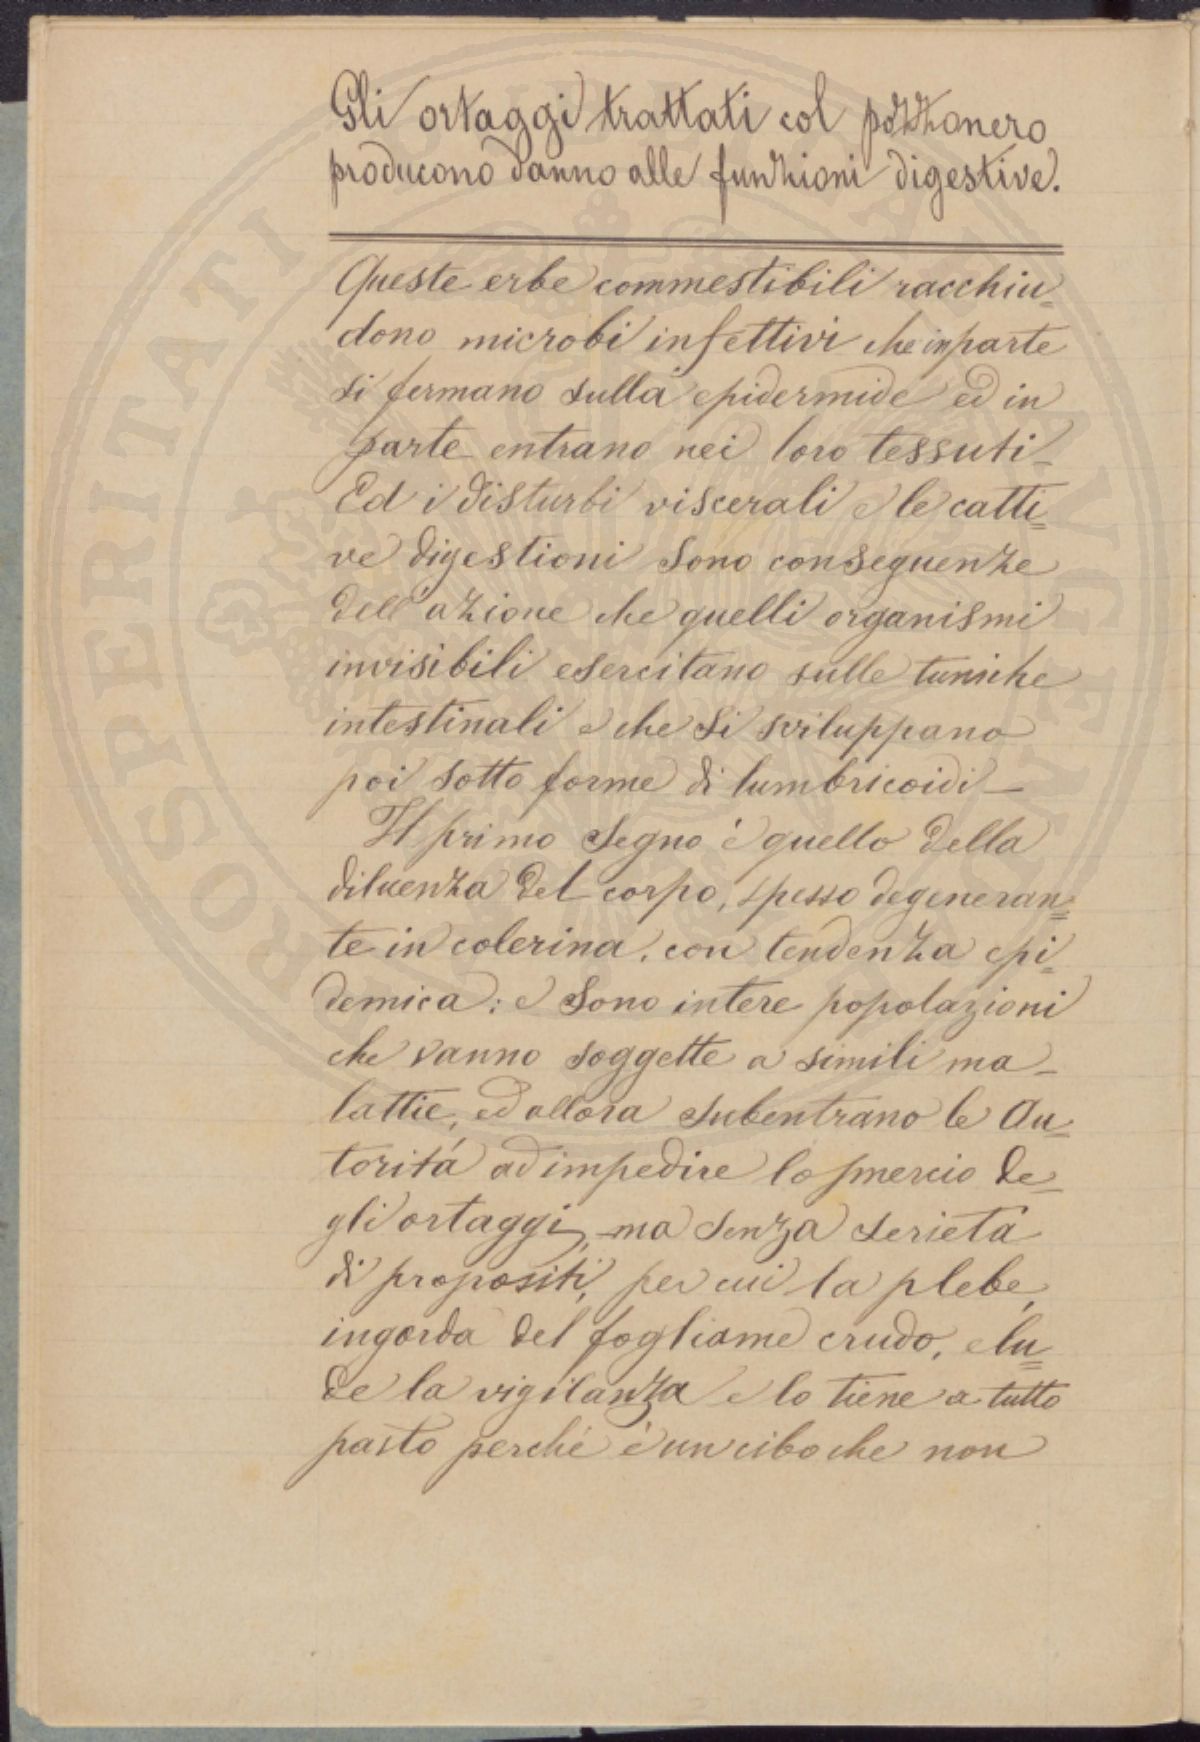 Gli ortaggi trattati col pozzonero
producono danno alle funzioni digestive.
Queste erbe commestibili racchiu=
dono microbi infettivi che in parte
si fermano sulla epidermide ed in
parte entrano nei loro tessuti_
Ed i disturbi viscerali e le catti=
ve digestioni sono conseguenze
dell'azione che quelli organismi
invisibili esercitano sulle tuniche
intestinali e che si sviluppano
poi sotto forme di lumbricoidi_
Il primo segno è quello della
diluenza del corpo, spesso degeneran=
te in colerina, con tendenza epi=
demica: e sono intere popolazioni
che vanno soggette a simili ma_
lattie, ed allora subentrano le Au=
toritá ad impedire lo smercio de_
gli ortaggi, ma senza serietá
di propositi, per cui la plebe,
ingorda del fogliame crudo, elu=
de la vigilanza e lo tiene a tutto
pasto perché è un cibo che non